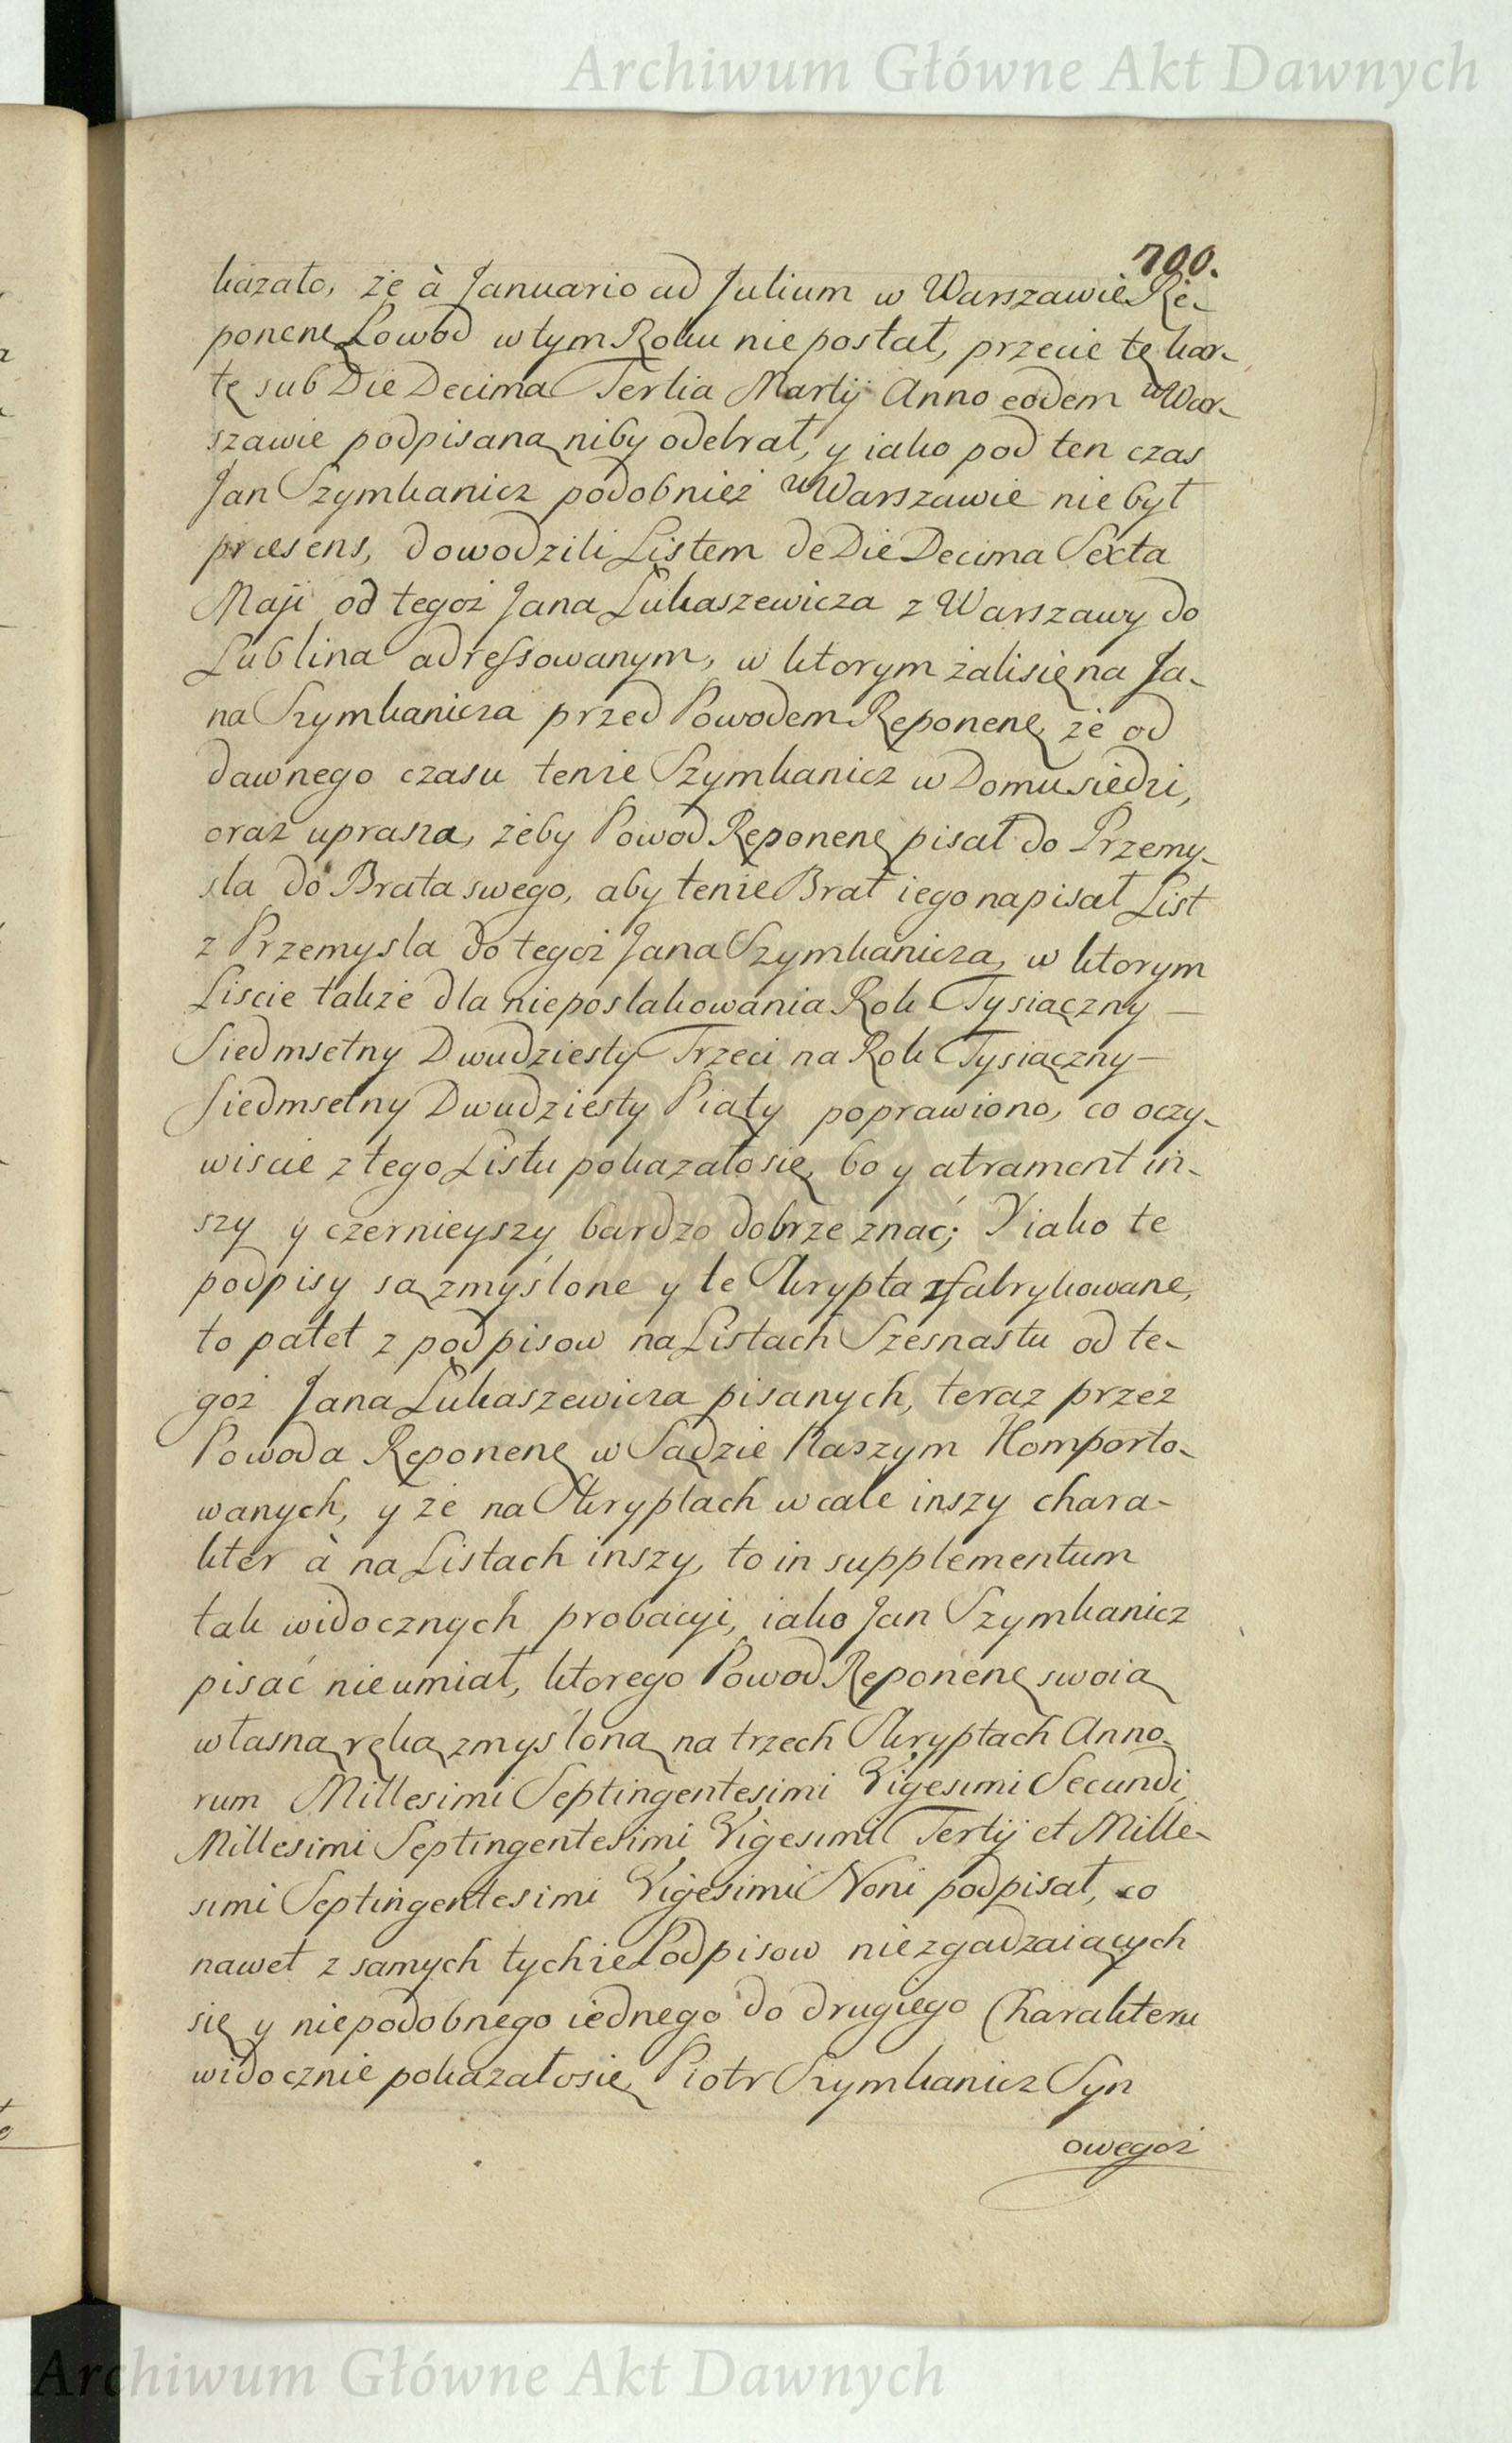 Archiwum Główne Akt Dawnych
700.
kazało, że à Januario ad Julium w Warszawie Re-
ponenę Powod w tym Roku nie postał, przecie tę kar-
tę sub Die Decima Tertia Martij Anno eodem w War-
szawie podpisaną niby odebrał, y iako pod ten czas
Jan Szymkanicz podobnież w Warszawie nie był
præsens, dowodzili Listem de Die Decima Sexta
Maji od tegoż Jana Łukaszewicza z Warszawy do
Lublina adressowanym, w ktorym żali się na Ja-
na Szymkanicza przed Powodem Reponenę, że od
dawnego czasu tenże Szymkanicz w Domu siedzi,
oraz uprasza, żeby Powod Reponenę pisał do Przemy-
sla do Brata swego, aby tenże Brat iego napisał List
z Przemysla do tegoż Jana Szymkanicza, w ktorym
Liscie także dla nieposlakowania Rok Tysiączny —
Siedmsetny Dwudziesty Trzeci na Rok Tysiączny —
Siedmsetny Dwudziesty Piąty poprawiono, co oczy-
wiscie z tego Listu pokazało się, bo y atrament in-
szy y czernieyszy bardzo dobrze znać; Y iako te
podpisy są zmyślone y te Skrypta zfabrykowane,
to patet z podpisow na Listach Szesnastu od te-
goż Jana Łukaszewicza pisanych, teraz przez
Powoda Reponenę w Sądzie Naszym Komporto-
wanych, y że na Skryptach wcale inszy chara-
kter à na Listach inszy, to in supplementum
tak widocznych probacyi, iako Jan Szymkanicz
pisać nie umiał, ktorego Powod Reponenę swoią
własną ręką zmysloną na trzech Skryptach Anno-
rum Millesimi Septingentesimi Vigesimi Secundi,
Millesimi Septingentesimi Vigesimi Tertij et Mille-
simi Septingentesimi Vigesimi Noni podpisał, co
nawet z samych tychże Podpisow niezgadzaiących
się y niepodobnego iednego do drugiego Charakteru
widocznie pokazało się, Piotr Szymkanicz Syn
owegoż
Archiwum Główne Akt Dawnych